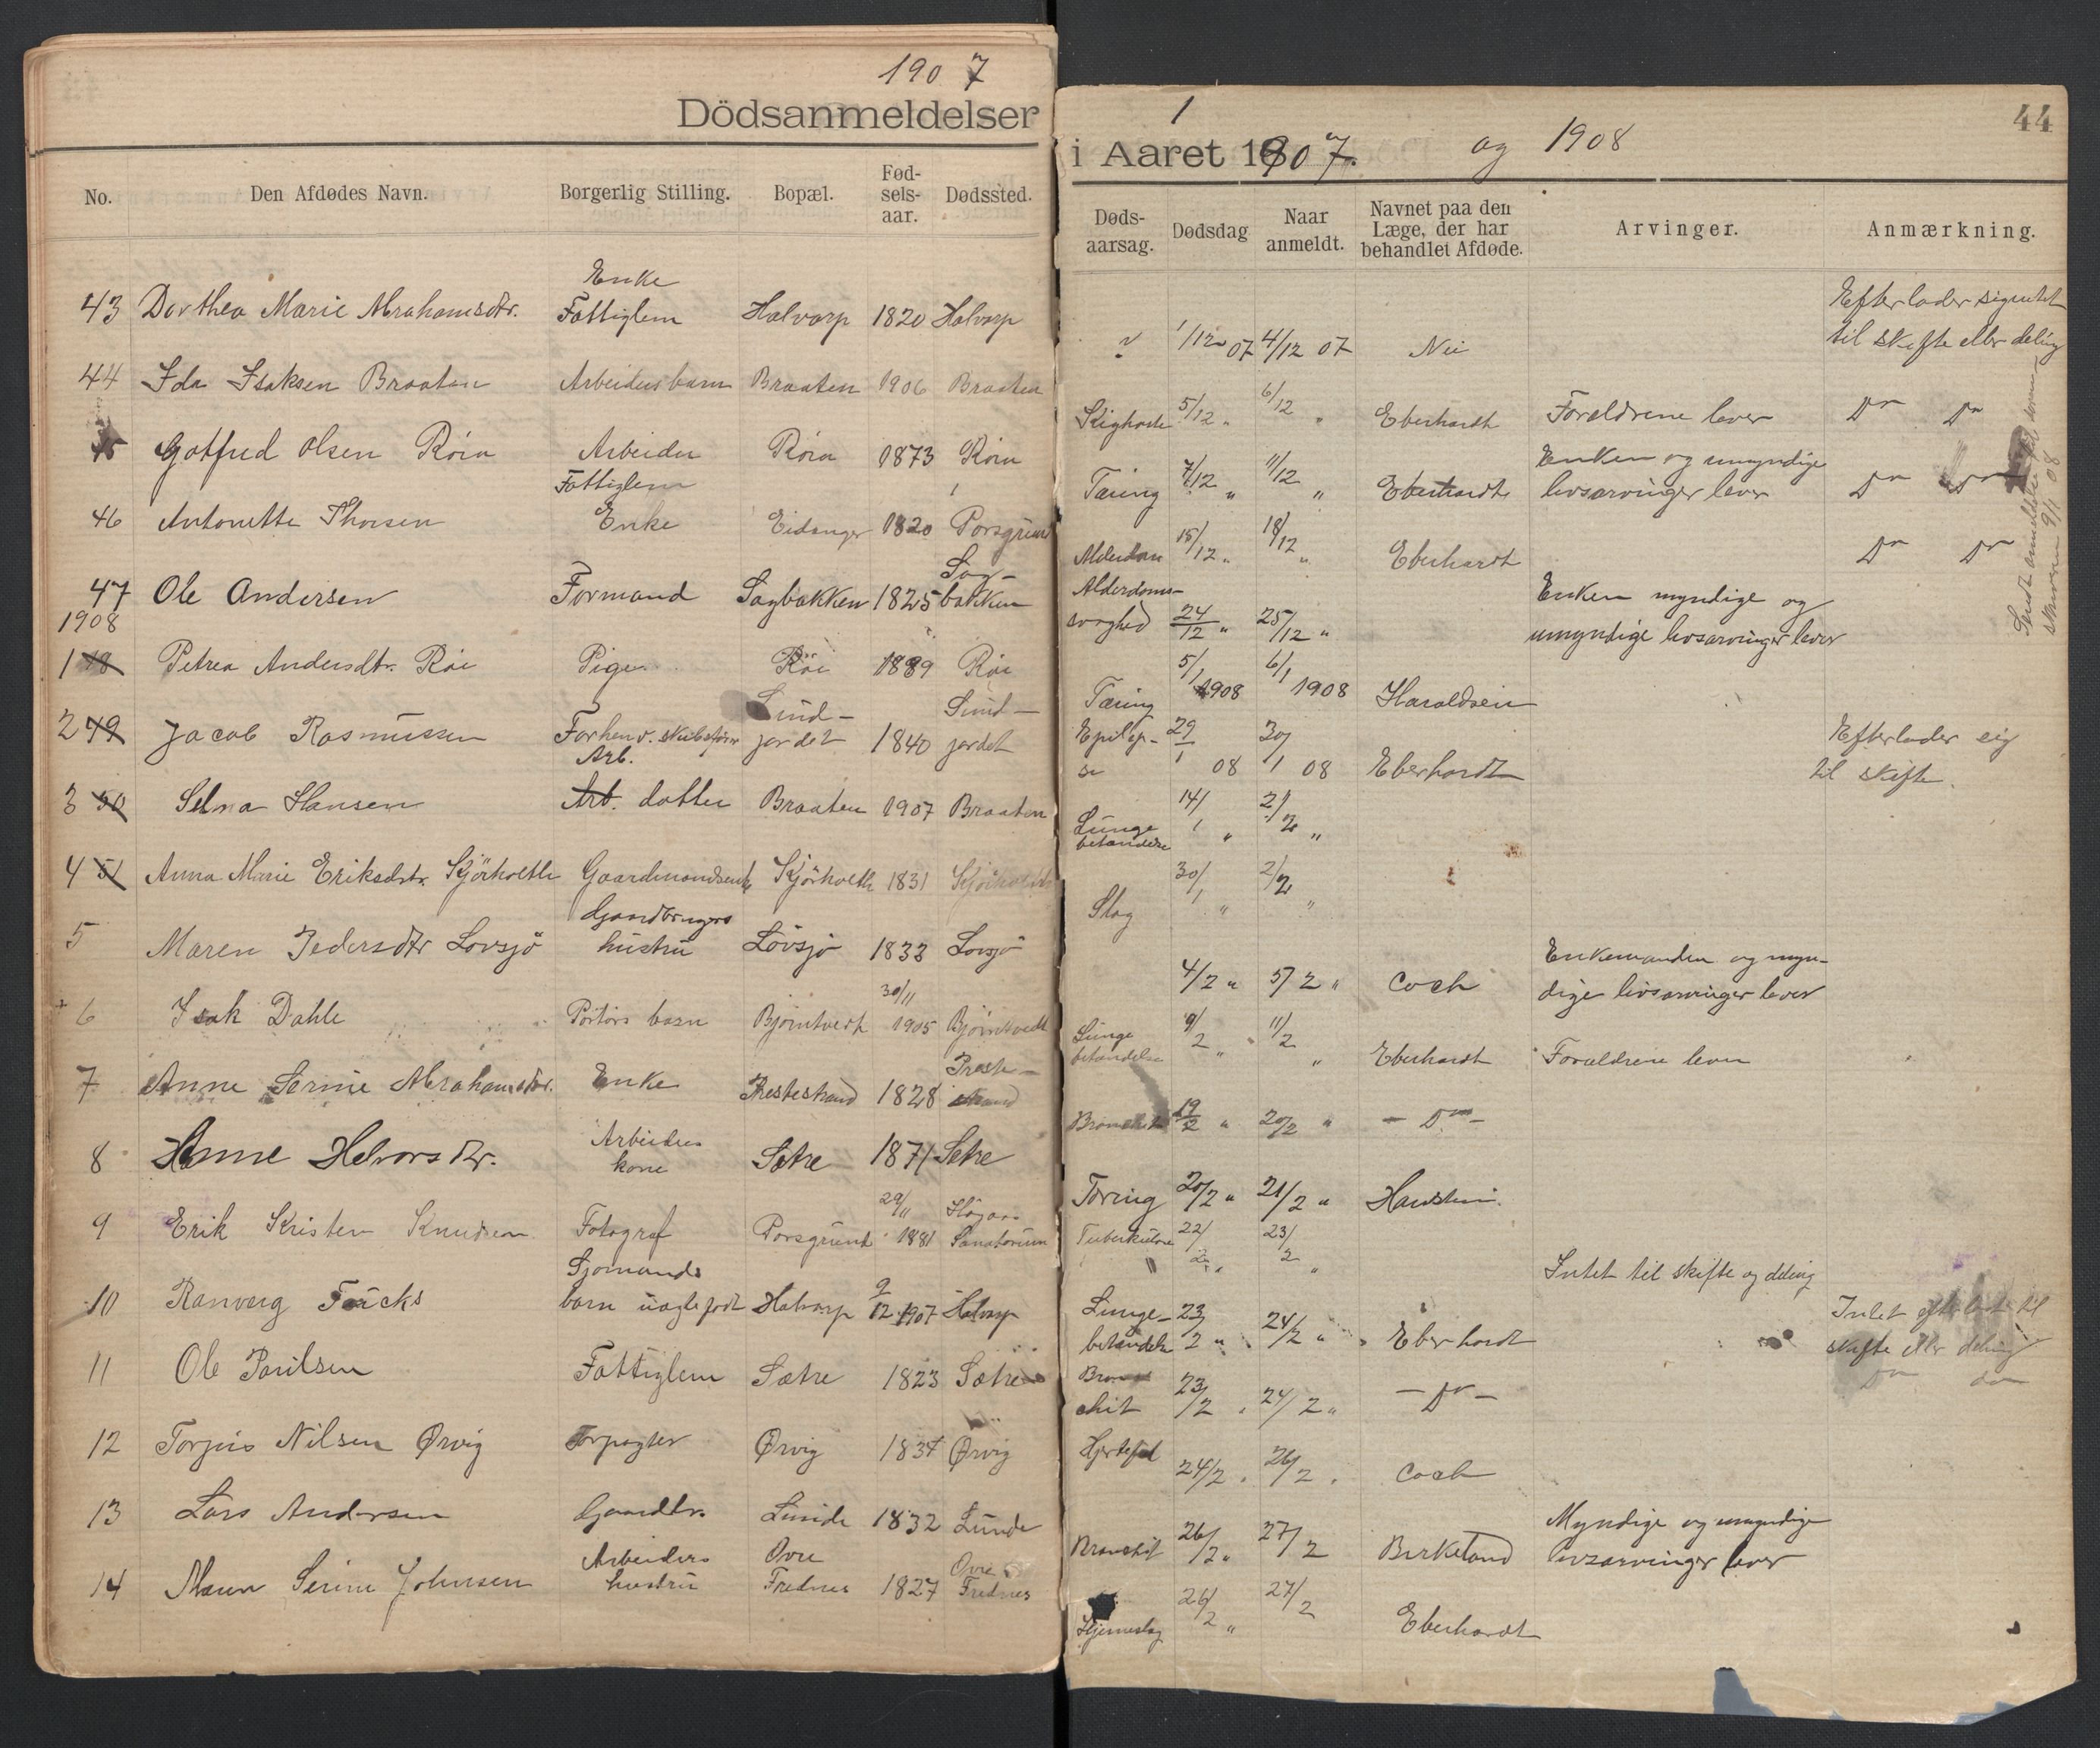 1907
Dödsanmeldelser
No. Den Afdødes Navn. Borgerlig Stilling. Bopæl. Fød-sels-aar. Dødssted.
43 Dorthea Marie Abrahamsdtr. Enke Fattiglem Halvarp 1820 Halvarp
44 Ida Isaksen Braaten Arbeidersbarn Braaten 1906 Braaten
45 Gotfred Olsen Röra Arbeider Röra 1873 Röra
46 Antonette Thorsen Fattiglem Enke Eidanger 1820 Porsgrund
47 Ole Andersen Formand Sagbakken 1825 Sag-bakken
1908
1 48 Petrea Andersdtr. Röe Pige Röe 1889 Röe
2 49 Jacob Rasmussen Forhenv. Lund-jordet 1840 Lund-jordet
3 50 Selma Hansen Arb. Arb. datter Braaten 1907 Braaten
4 51 Anna Marie Eriksdtr. Kjörholth Gaardmandsenke Kjörholth 1831 Kjörholth
5 Maren Pedersdtr Lövsjö Gaardbrugers hustru Lövsjö 1833 Lövsjö
6 Isak Dahle Portörs barn Björntvedt 30/11 1905 Björntvedt
7 Anne Serine Abrahamsdtr. Enke Prestestrand 1828 Preste-strand
8 Anne Halvorsdtr. Arbeiders kone Sætre 1871 Sætre
9 Erik Kristen Knudsen Fotograf Porsgrund 29/11 1881 Sanatorium
10 Ranveig Fucks Sjømands barn uægtefødt Halvarp 9/12 1907 Halvarp
11 Ole Paulsen Fattiglem Sætre 1823 Sætre
12 Torjus Nilsen Ørvig Forpagter Ørvig 1837 Ørvig
13 Lars Andersen Gaardbr. Lunde 1832 Lunde
14 Maren Serine Johnsen Arbeiders hustru Övre Frednes 1827 Övre Frednes
44
i Aaret 1907. og 1908
Døds-aarsag. Dødsdag Naar anmeldt. Navnet paa den Læge, der har behandlet Afdøde. Arvinger. Anmærkning.
? 1/12 07 4/12 07 Nei Efterlader sig intet til skifte eller deling
Kighoste 5/12 " 6/12 " Eberhardt Forældrene lever Do Do
Tæring 7/12 " 11/12 " Eberhardt Enken og umyndige livsarvinger lever Do Do
Alderdom 15/12 " 18/12 " Eberhardt Do Do
Alderdoms-svaghed 24/12 " 25/12 " Enken myndige og umyndige livsarvinger lever
Tæring 5/1 1908 6/1 1908 Haraldsen
Epilep-si 29/1 08 30/1 08 Eberhardt Efterlader sig til skifte.
Lunge betændelse 14/1 " 2/2 "
Slag 30/1 " 2/2 "
4/2 " 5/2 " Coch Enkemanden og myn-dige livsarvinger lever
Lunge betændelse 9/2 " 11/2 " Eberhardt Forældrene lever
Bronchit 19/2 " 20/2 " - Do -
Tæring 20/2 " 21/2 "
Tuberkulose 22/2 " 23/2 " Intet til skifte og deling
Lunge-betændelse 23/2 " 24/2 " Eberhardt Intet efterladt til skifte eller deling
Bronchit 23/2 " 24/2 " - Do - Do do
Hjertefeil 24/2 " 26/2 " Coch
Bronchit 26/2 " 27/2 Birkeland Myndige og umyndige livsarvinger lever
Hjerneslag 26/2 " 27/2 Eberhardt
9/1 08